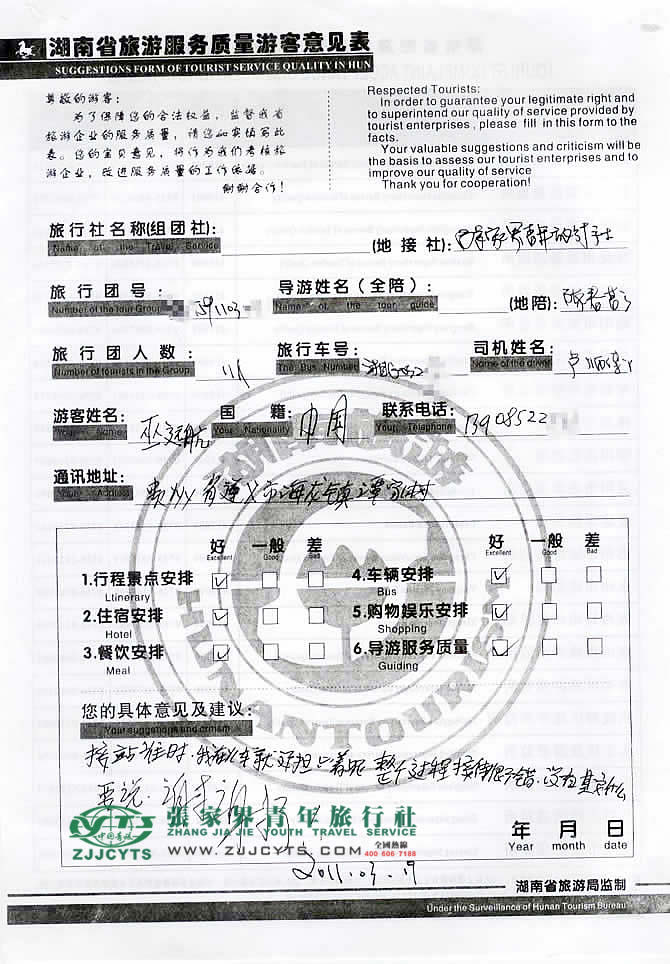 湖南省旅游服务质量游客意见表
SUGGESTIONS FORM OF TOURIST SERVICE QUALITY IN HUN
尊敬的游客：
为了保障您的合法权益，监督我省
旅游企业的服务质量，请您如实填写此
表。您的宝贝意见，将作为我们考核旅
游企业，改进服务质量的工作依据。
谢谢合作！
Respected Tourists:
In order to guarantee your legitimate right and
to superintend our quality of service provided by
tourist enterprises , please fill in this form to the
facts.
Your valuable suggestions and criticism will be
the basis to assess our tourist enterprises and to
improve our quality of service
Thank you for cooperation!
旅行社名称(组团社):
Name of the Travel Service
(地 接 社):
旅 行 团 号 :
Number of the tour Group
1103
导游姓名（全陪）:
Name of the tour guide
(地陪):
旅 行 团 人 数 :
Number of tourists in the Group
旅行车号:
The Bus Number
司机姓名:
Name of the driver
游客姓名:
Your Name
国 籍:
Your Nationality
中国
联系电话:
Your Telephone
13908522
通讯地址:
Your Address
贵州省遵义市海龙镇
好 一般 差 好 一般 差
Excellent Good Bad Excellent Good Bad
1.行程景点安排 4.车辆安排
Ltinerary Bus
2.住宿安排 5.购物娱乐安排
Hotel Shopping
3.餐饮安排 6.导游服务质量
Meal Guiding
HUNAN TOURISM
您的具体意见及建议:
Your suggestions and critism
接站准时，整个过程接待很不错，没有其它什么
要说，谢谢
中国青旅
ZJJCYTS
張家界青年旅行社
ZHANG JIA JIE YOUTH TRAVEL SERVICE
WWW.ZJJCYTS.COM
全國熱線
400 606 7188
年 月 日
Year month date
2011.03.19
湖南省旅游局监制
Under the Surveillance of Hunan Tourism Bureau